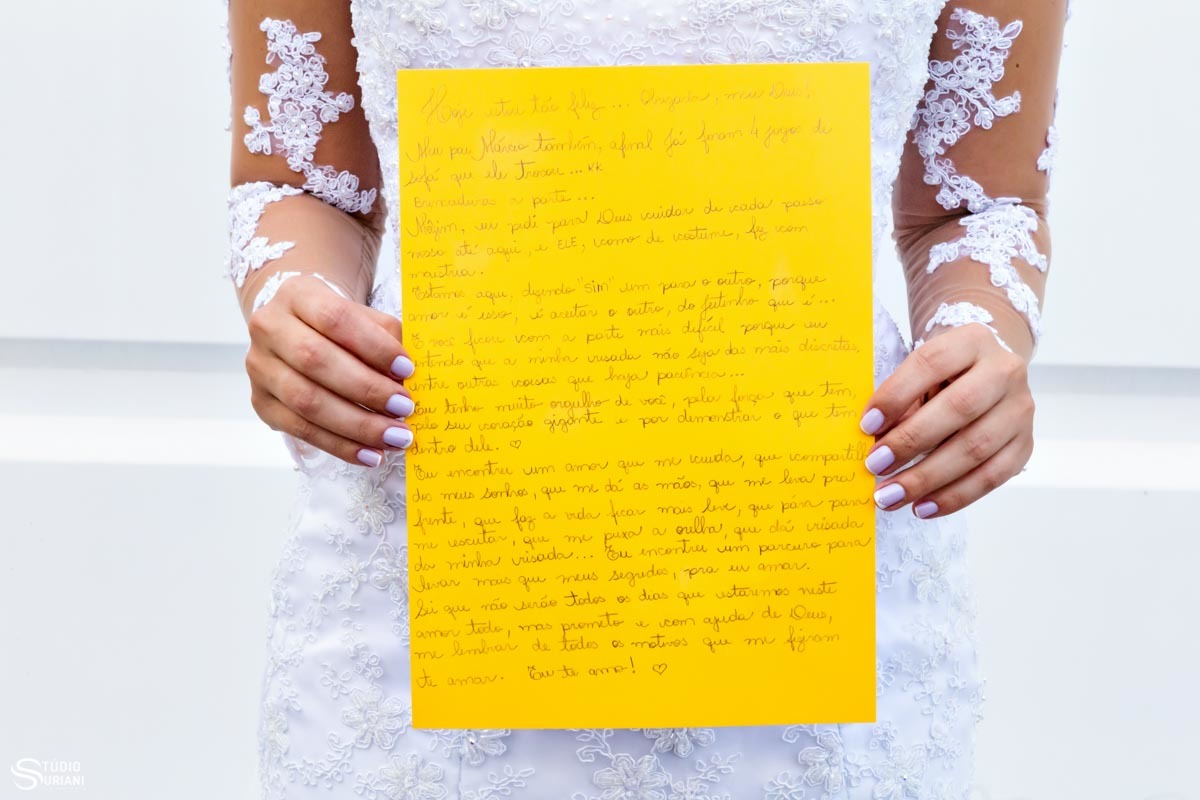 Hoje estou tão feliz... Obrigada, meu Deus!
Meu pai Márcio também, afinal já foram 4 jogos de
sofá que ele trocou... kk
Brincadeiras a parte...
Môzim, eu pedi para Deus cuidar de cada passo
nosso até aqui, e ELE, como de costume, fez com
maestria.
Estamos aqui, dizendo "sim" um para o outro, porque
amor é isso, é aceitar o outro, do jeitinho que é...
E você ficou com a parte mais difícil porque eu
entendo que a minha risada não seja das mais discretas,
entre outras coisas que haja paciência...
Eu tenho muito orgulho de você, pela força que tem,
pelo seu coração gigante e por demonstrar o que tem
dentro dele. ♡
Eu encontrei um amor que me cuida, que compartilha
dos meus sonhos, que me dá as mãos, que me leva pra
frente, que faz a vida ficar mais leve, que pára para
me escutar, que me puxa a orelha, que dá risada
da minha risada... Eu encontrei um parceiro para
levar mais que meus segredos, pra eu amar.
Sei que não serão todos os dias que estaremos neste
amor todo, mas prometo e com ajuda de Deus,
me lembrar de todos os motivos que me fizeram
te amar. Eu te amo! ♡
STÚDIO
SURIANI